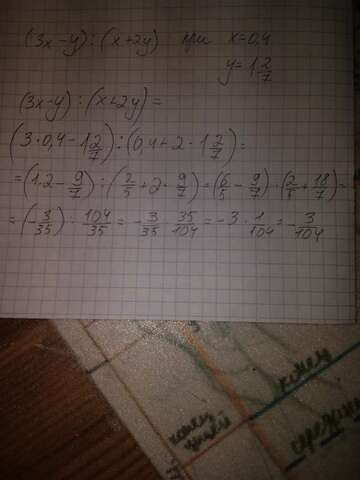 (3x-y):(x+2y) при x=0,4
y=1 2/7
(3x-y):(x+2y)=
(3·0,4-1 2/7):(0,4+2·1 2/7)=
=(1,2-9/7):(2/5+2·9/7)=(6/5-9/7):(2/5+18/7)=
=(-3/35):104/35=-3/35·35/104=-3·1/104=-3/104
конец